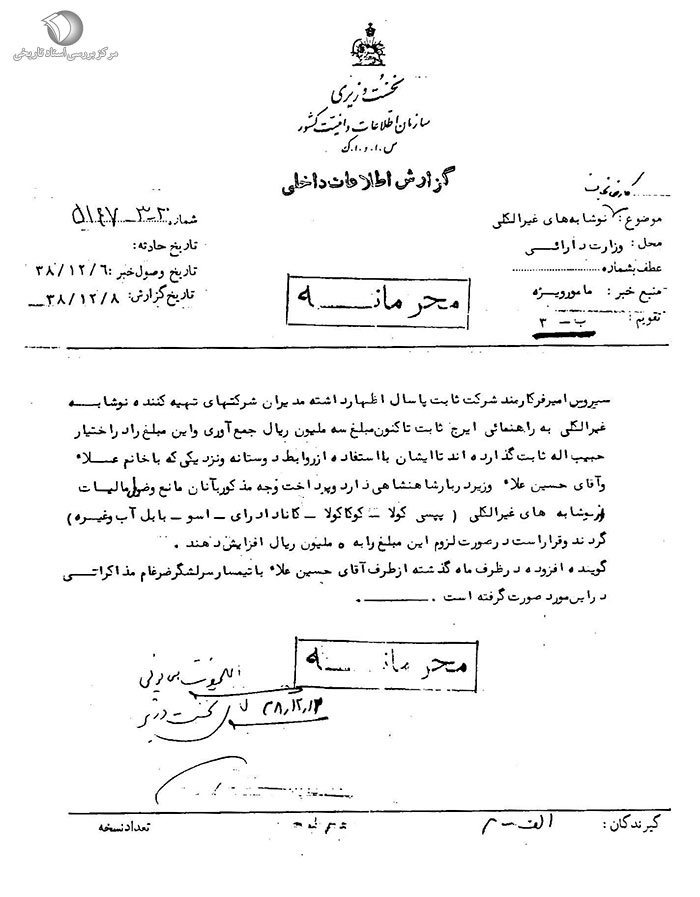 مرکز بررسی اسناد تاریخی
نخست وزیری
سازمان اطلاعات و امنیت کشور
س.ا.و.ا.ک
گزارش اطلاعات داخلی
موضوع: نوشابه های غیرالکلی
محل: وزارت دارائی
عطف بشماره
منبع خبر: مامورویژه
تقویم: ب - ۳
شماره
تاریخ حادثه:
تاریخ وصول خبر: ۳۸/۱۲/۶
تاریخ گزارش: ۳۸/۱۲/۸
محرمانه
سیروس امیرفر کارمند شرکت ثابت پاسال اظهارداشته مدیران شرکتهای تهیه کننده نوشابه
غیرالکلی به راهنمائی ایرج ثابت تاکنون مبلغ سه ملیون ریال جمع آوری واین مبلغ رادراختیار
حبیب اله ثابت گذارده اند تاایشان بااستفاده ازروابط دوستانه ونزدیکی که باخانم علاء
وآقای حسین علاء وزیردربارشاهنشاهی دارد وپرداخت وجه مذکوربآنان مانع وصول مالیات
ازنوشابه های غیرالکلی ( پپسی کولا - کوکاکولا - کانادادرای - اسو - بابل آپ وغیره )
گردند وقراراست درصورت لزوم این مبلغ رابه ۵ ملیون ریال افزایش دهند .
گوینده افزوده درظرف ماه گذشته ازطرف آقای حسین علاء باتیمسارسرلشگرضرغام مذاکراتی
دراین مورد صورت گرفته است .
محرمانه
۳۸/۱۲/۱۲
نخست وزیر
گیرندگان:
تعدادنسخه